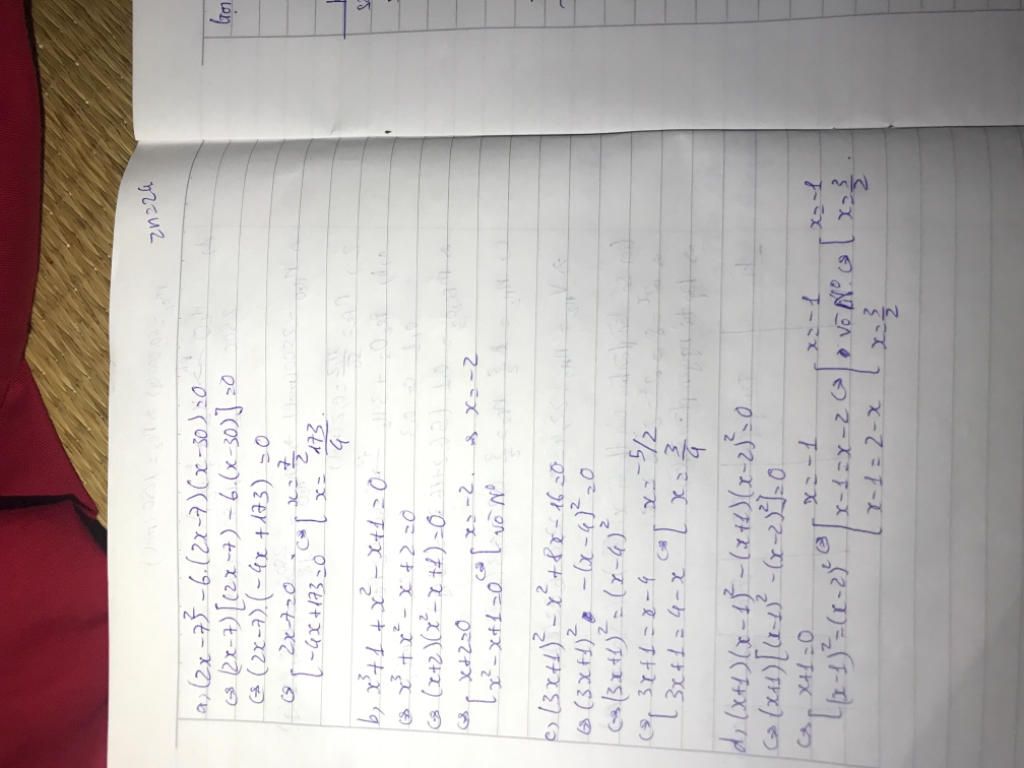 2n=24
a, (2x-7)² - 6.(2x-7)(x-30)=0
⇔ (2x-7)[(2x-7)-6.(x-30)]=0
⇔ (2x-7)(-4x+173)=0
⇔ [ 2x-7=0 ⇔ [ x=7/2
-4x+173=0 x=173/4
b, x³+1+x²-x+1=0
⇔ x³+x²-x+2=0
⇔ (x+2)(x²-x+1)=0
⇔ [ x+2=0 ⇔ [ x=-2 ⇒ x=-2
x²-x+1=0 vô N⁰
c, (3x+1)²-x²+8x-16=0
⇔ (3x+1)² -(x-4)²=0
⇔ (3x+1)²=(x-4)²
⇔ [ 3x+1=x-4 ⇔ [ x=-5/2
3x+1=4-x x=3/4
d, (x+1)(x-1)²-(x+1)(x-2)²=0
⇔ (x+1)[(x-1)²-(x-2)²]=0
⇔ [ x+1=0 ⇔ [ x=-1 ⇔ [ x=-1 ⇔ [ x=-1
(x-1)²=(x-2)² x-1=x-2 vô N⁰ x=3/2.
x-1=2-x x=3/2